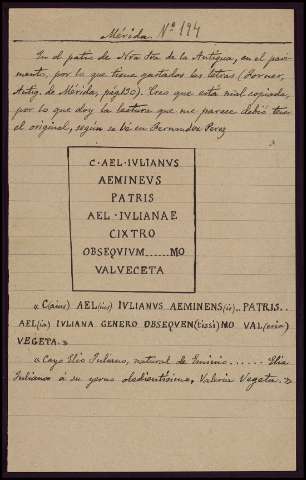 Mérida. Nº 194
En el patio de Nra Sra de la Antigua, en el pavi-
mento, por lo que tiene gastadas las letras (Forner,
Antig. de Mérida, pág 130). Creo que está mal copiada,
por lo que doy la lectura que me parece debió tener
el original, según se vé en Fernandez Perez
C·AEL·IVLIANVS
AEMINEVS
PATRIS
AEL·IVLIANAE
CIXTRO
OBSEQVIVM......MO
VALVECETA
«C(aius) AEL(ius) IVLIANVS AEMINENS(is).. PATRIS..
AEL(ia) IVLIANA GENERO OBSEQVEN(tissi)MO VAL(eria)
VEGETA.»
«Cayo Elio Juliano, natural de Eminio...... Elia
Juliana á su yerno obedientísimo, Valeria Vegeta.»